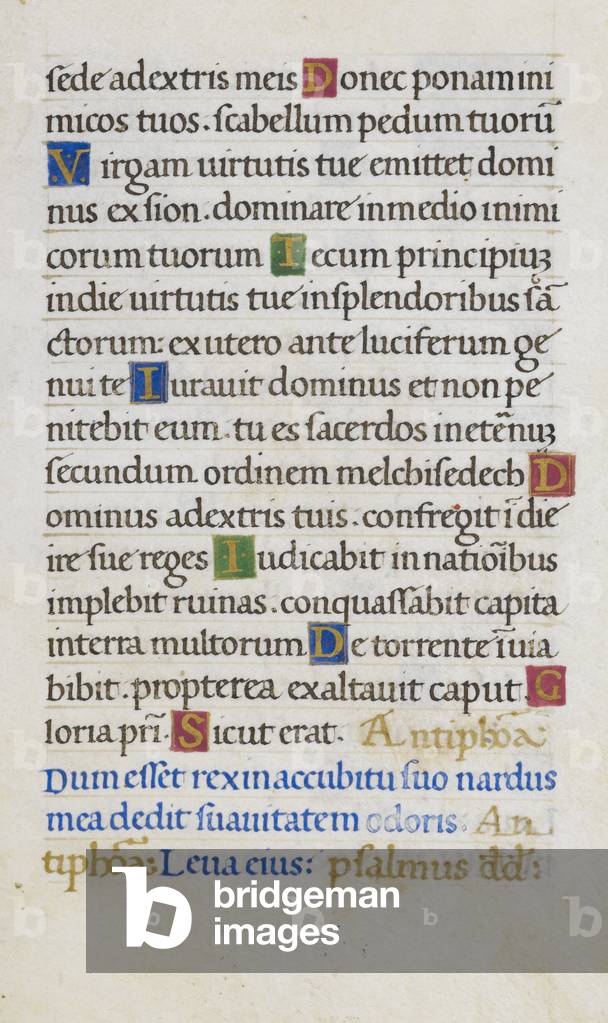 sede adextris meis Donec ponam ini
micos tuos. scabellum pedum tuorū
Virgam uirtutis tue emittet domi
nus ex sion. dominare in medio inimi
corum tuorum Tecum principiuȝ
in die uirtutis tue in splendoribus sā
ctorum: ex utero ante luciferum ge
nui te Iurauit dominus et non pe
nitebit eum. tu es sacerdos in etēnuȝ
secundum ordinem melchisedech D
ominus adextris tuis. confregit ī die
ire sue reges Iudicabit in natiōibus
implebit ruinas. conquassabit capita
in terra multorum De torrente ī uia
bibit. propterea exaltauit caput. G
loria pr̄i. Sicut erat. Antiphōa
Dum esset rex in accubitu suo nardus
mea dedit suauitatem odoris. An
tiphōa: Leua eius: psalmus dd:
bridgeman
images